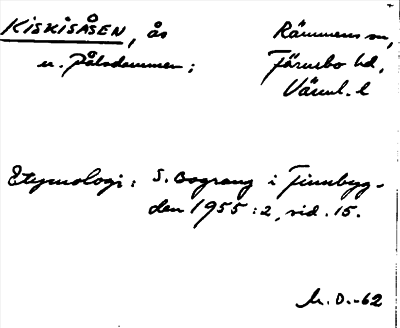 KISKISÅSEN, ås Rämmens sn,
n. Pålsdammen; Färnebo hd,
Värml. l
Etymologi: S. Bograng i Finnbyg-
den 1955:2, sid. 15.
M.O.-62